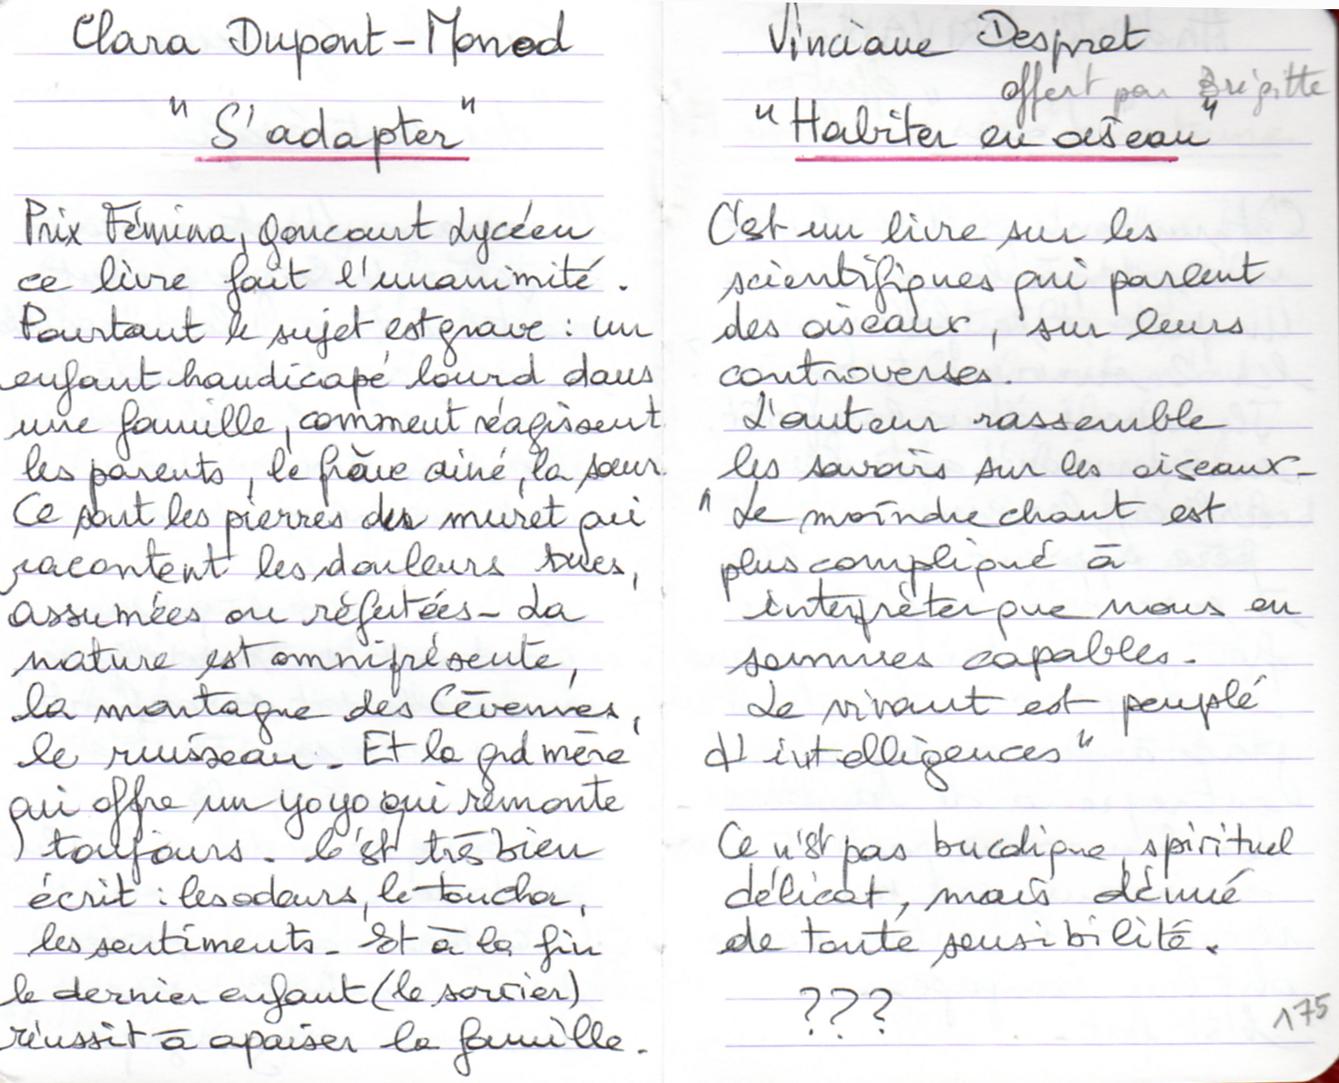 Clara Dupont-Monod
"S'adapter"
Prix Fémina, goncourt Lycéen
ce livre fait l'unanimité.
Pourtant le sujet est grave : un
enfant handicapé lourd dans
une famille, comment réagissent
les parents, le frère ainé, la sœur.
Ce sont les pierres des muret qui
racontent les douleurs tues,
assumées ou réfutées - La
nature est omniprésente,
la montagne des Cévennes,
le ruisseau. Et la grd mère
qui offre un yoyo qui remonte
toujours. C'est très bien
écrit : les odeurs, le toucher,
les sentiments - Et à la fin
le dernier enfant (le sorcier)
réussit à apaiser la famille.
Vinciane Despret
offert par Brigitte
"Habiter en oiseau"
C'est un livre sur les
scientifiques qui parlent
des oiseaux, sur leurs
controverses.
L'auteur rassemble
les savoirs sur les oiseaux -
"Le moindre chant est
plus compliqué à
interprèter que nous en
sommes capables.
Le vivant est peuplé
d'intelligences"
Ce n'est pas bucolique, spirituel
délicat, mais dénué
de toute sensibilité.
???
175